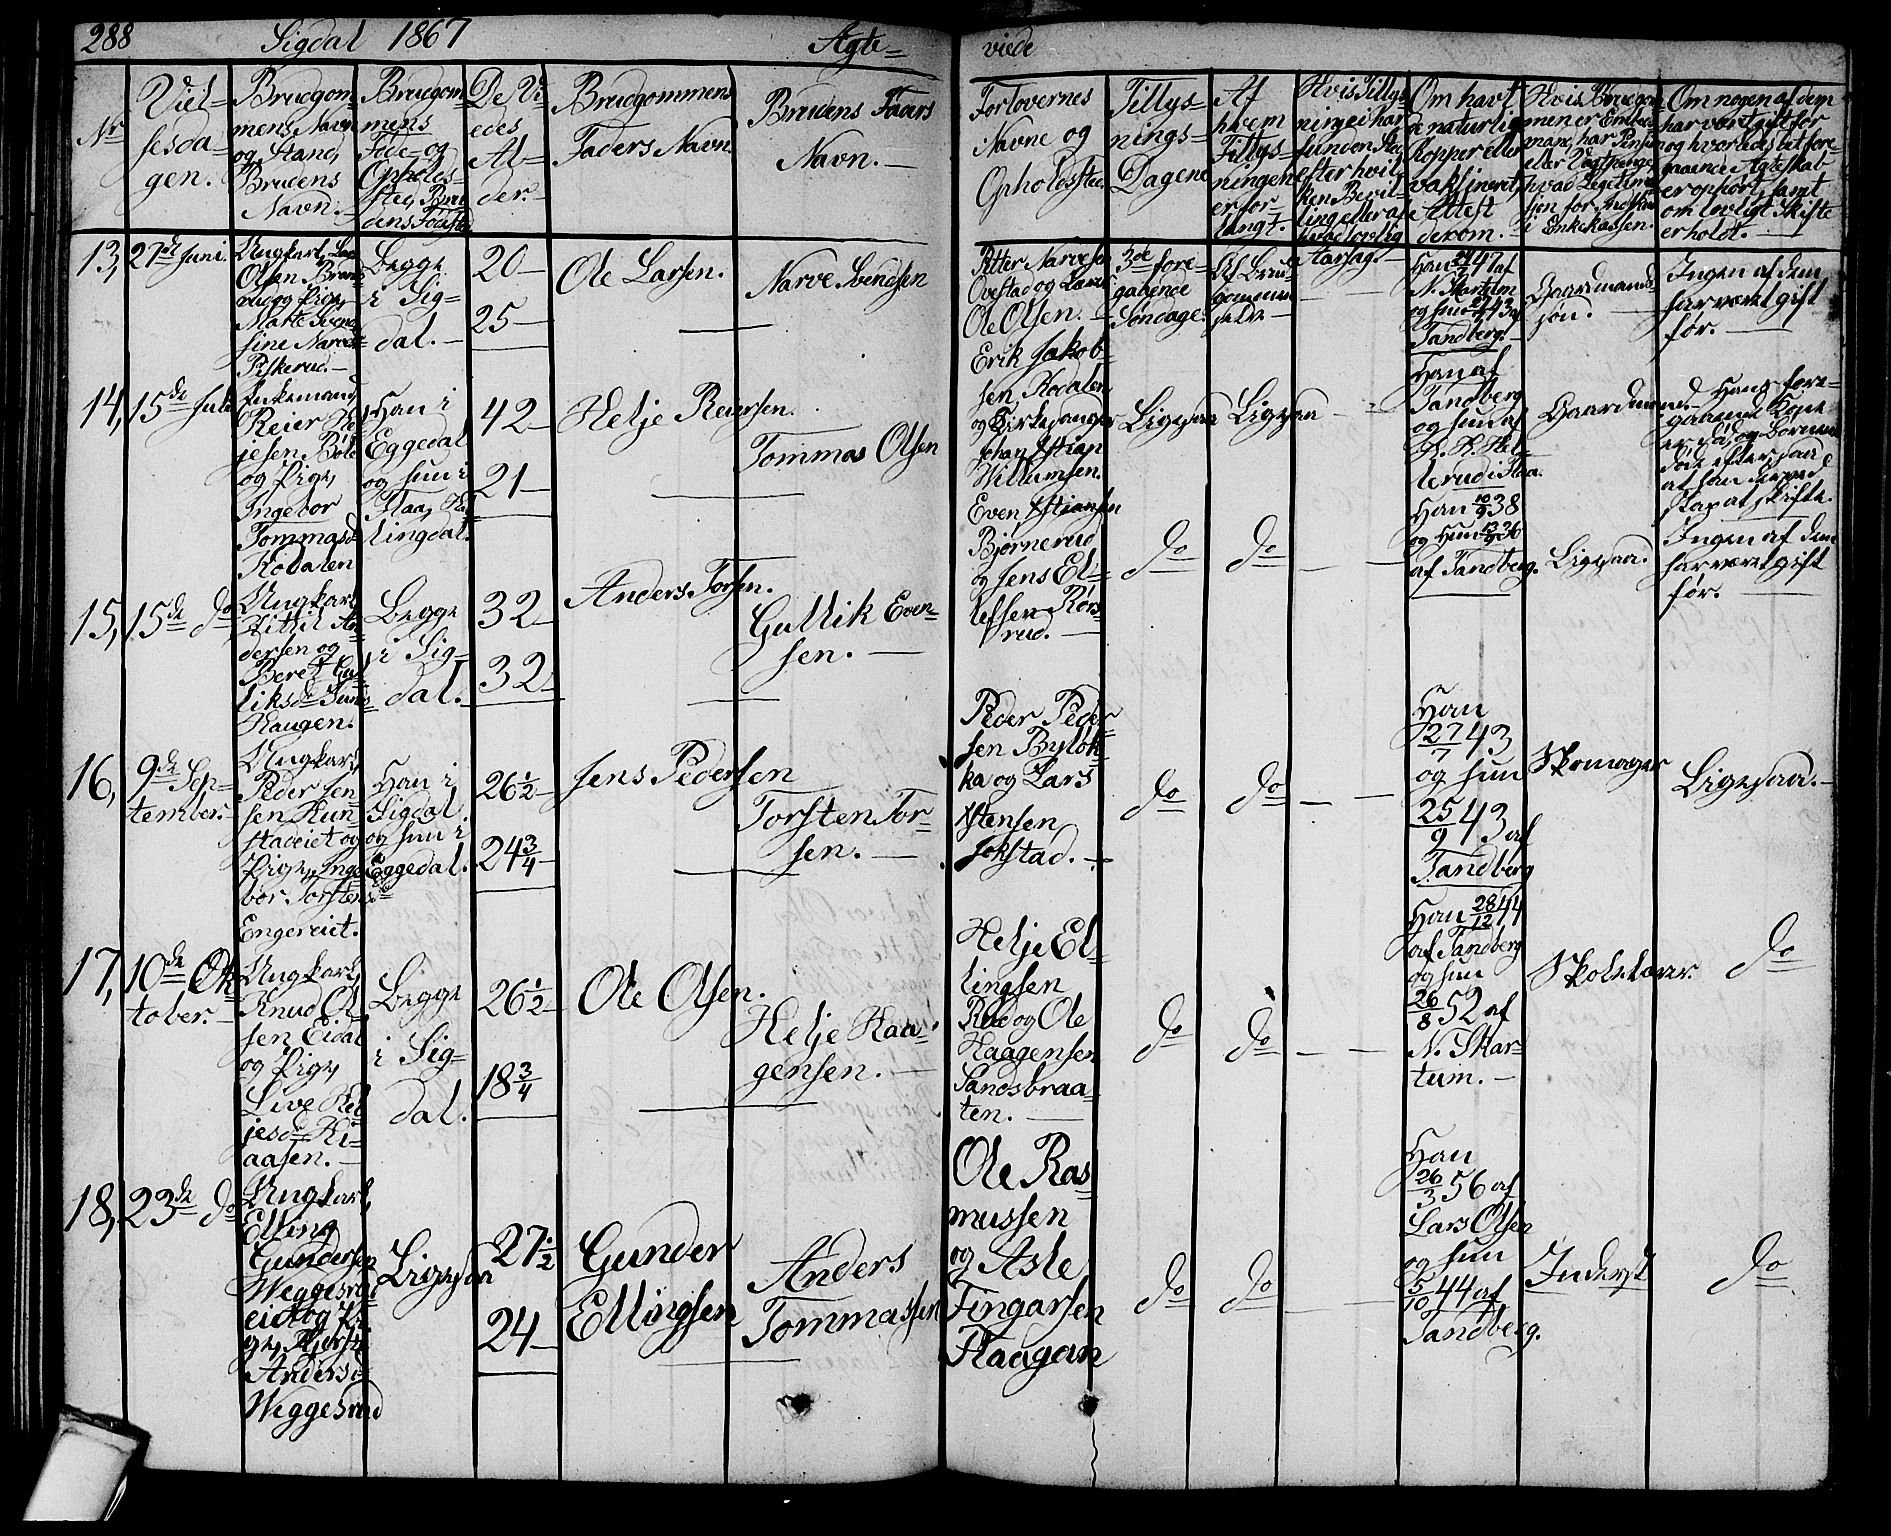 288 Sigdal 1867 Ægte=
viede
Nr
Viel-
sesda-
gen.
Brudgom-
mens Navn
og Stand,
Brudens
Navn.
Brudgom-
mens
Føde- og
Opholds-
sted, Bru-
dens Fødested
De Vi-
edes
Al-
der.
Brudgommens
Faders Navn.
Brudens Faars
Navn.
Forlovernes
Navne og
Opholdsted
Tillys-
nings-
Dagene
Af
hvem
Tillys-
ningen
er for-
langt.
Hvis Tillys-
ning ei har
funden Sted
efter hvil-
ken Bevil-
ling eller af
hvad lovlig
Aarsag.
Om havt
de naturlige
kopper eller
vaksineret,
Attest
derom.
Hvis Brudgom-
men er Embeds-
mand, har Pension
eller Vagtpenge,
hvad Legitima-
sjon for Indskud
i Enkekassen.
Om nogen af dem
har været gift før
og hvorledes det fore-
gaaende Ægteskab
er ophørt, samt
om lovligt Skifte
er holdt.
13, 27de Juni
Ungkarl, Lars
Olsen
og Pige,
Marte Svend-
sine Narves-
Piskerud.
Begge
i Sig-
dal.
20
25
Ole Larsen.
Narve Svendsen
Petter Narvesen
Ovestad og Lærer
Ole Olsen.
3de fore-
gaaende
Søndage.
Af Brud-
gommen
selv
Han 47 af
N. Skartum
og hun 43 af
Tandberg.
Gaardmands-
søn.
Ingen af dem
har været gift
før.
14, 15de Juli
Enkemand
Reier Hel-
jesen Bøle
og Pige,
Ingebor
Tommasd
Kodalen
Han i
Eggedal
og hun i
Flaa, Hal-
lingdal.
42
21
Helje Reiersen.
Tommas Olsen
Erik Jakob-
sen, Kodalen
og Kirkesanger
Johan
Willumsen.
Ligesaa
Ligesaa
Han af
Tandberg
og hun af
H. H. Hel-
lerud i Flaa.
Gaardmand.
Hans fore-
gaaende Kone
er død, og Børnene
døde efter, saa
at han Intet
skar at skifte.
15, 15de do
Ungkarl,
Kittil An-
dersen og
Beret Gul-
liksd. Juns-
Haugen.
Begge
i Sig-
dal.
32
32
Anders Torsen.
Gullik Even-
sen.
Even Kstiansen
Bjørnerud
og Jens El-
lefsen Rørs-
rud.
do
do
Han 10/9 38
og Hun 13/9 36
af Tandberg.
Ligesaa.
Ingen af dem
har været gift
før.
16, 9de Sep-
tember.
Ungkarl,
Peder Jen-
sen Kun-
stadeiet og
Pige, Inge-
bor Torstensd
Engereiet.
Han i
Sigdal
og hun i
Eggedal.
26 1/2
24 3/4
Jens Pedersen
Torsten Tor-
sen.
Peder Peder-
sen Byløk-
ka og Lars
Kstensen
Jokstad.
do
do
Han
27/7 43
og hun
25/9 43 af
Tandberg
Skomager
Ligesaa.
17, 10de Ok-
tober.
Ungkarl,
Knud Ol-
sen Eidal
og Pige,
Live Hel-
jesd. Ki-
aasen.
Begge
i Sig-
dal.
26 1/2
18 3/4
Ole Olsen.
Helje Haa-
gensen.
Helje El-
lingsen
Rud og Ole
Haagensen
Sandsbraa-
ten.
do
do
Han 28/12 44
af Tandberg
og hun
26/8 52 af
N. Skar-
tum.
Skolelærer.
do
18, 23de do
Ungkarl,
Elling
Gundersen
Weggesrud-
eiet og Pi-
ge, Kjersti
Andersd
Weggesrud
Ligesaa
27 1/2
24
Gunder
Ellingsen
Anders
Tommassen
Ole Ras-
mussen
og Asle
Fingarsen
Flaagan
do
do
Han
26/3 56 af
Lars Olsen
og hun
5/10 44 af
Tandberg.
Inderst
do